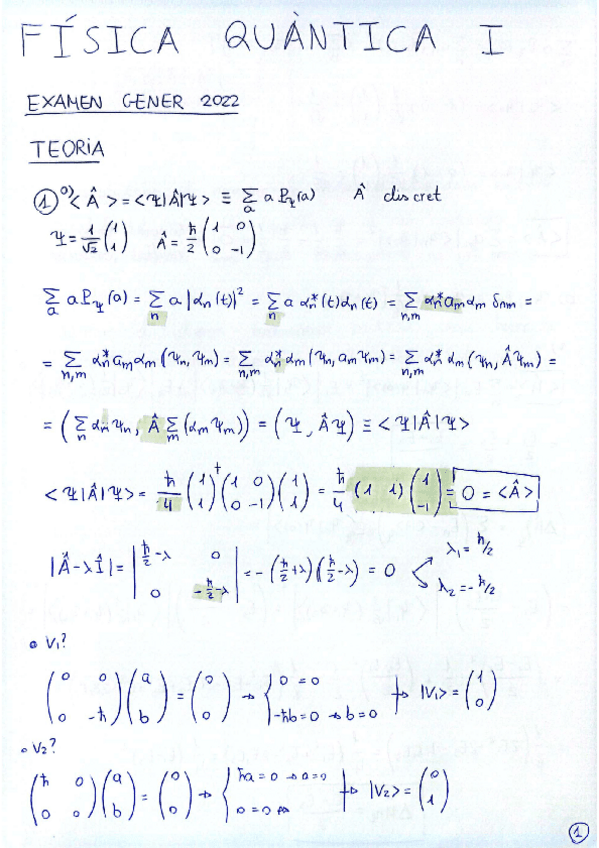 FÍSICA QUÀNTICA I
EXAMEN GENER 2022
TEORIA
① a) <Â> = <Ψ|Â|Ψ> ≡ ∑_a a P_Ψ(a) Â discret
Ψ = 1/√2 (1 1) Â = ħ/2 (1 0 0 -1)
∑_a a P_Ψ(a) = ∑_n a |α_n(t)|² = ∑_n a α_n*(t) α_n(t) = ∑_{n,m} α_n* a_m α_m δ_nm =
= ∑_{n,m} α_n* a_m α_m (Ψ_n, Ψ_m) = ∑_{n,m} α_n* α_m (Ψ_n, a_m Ψ_m) = ∑_{n,m} α_n* α_m (Ψ_n, ÂΨ_m) =
= (∑_n α_n Ψ_n, Â ∑_m (α_m Ψ_m)) = (Ψ, ÂΨ) ≡ <Ψ|Â|Ψ>
<Ψ|Â|Ψ> = ħ/4 (1 1)† (1 0 0 -1) (1 1) = ħ/4 (1 1) (1 -1) = 0 = <Â>
|Â-λÎ| = |ħ/2-λ 0 0 -ħ/2-λ| = -(ħ/2+λ)(ħ/2-λ) = 0 λ₁ = ħ/2 λ₂ = -ħ/2
• V₁?
(0 0 0 -ħ) (a b) = (0 0) → {0 = 0 -ħb = 0 → b = 0 → |V₁> = (1 0)
• V₂?
(ħ 0 0 0) (a b) = (0 0) → {ħa = 0 → a = 0 0 = 0 → |V₂> = (0 1)
①